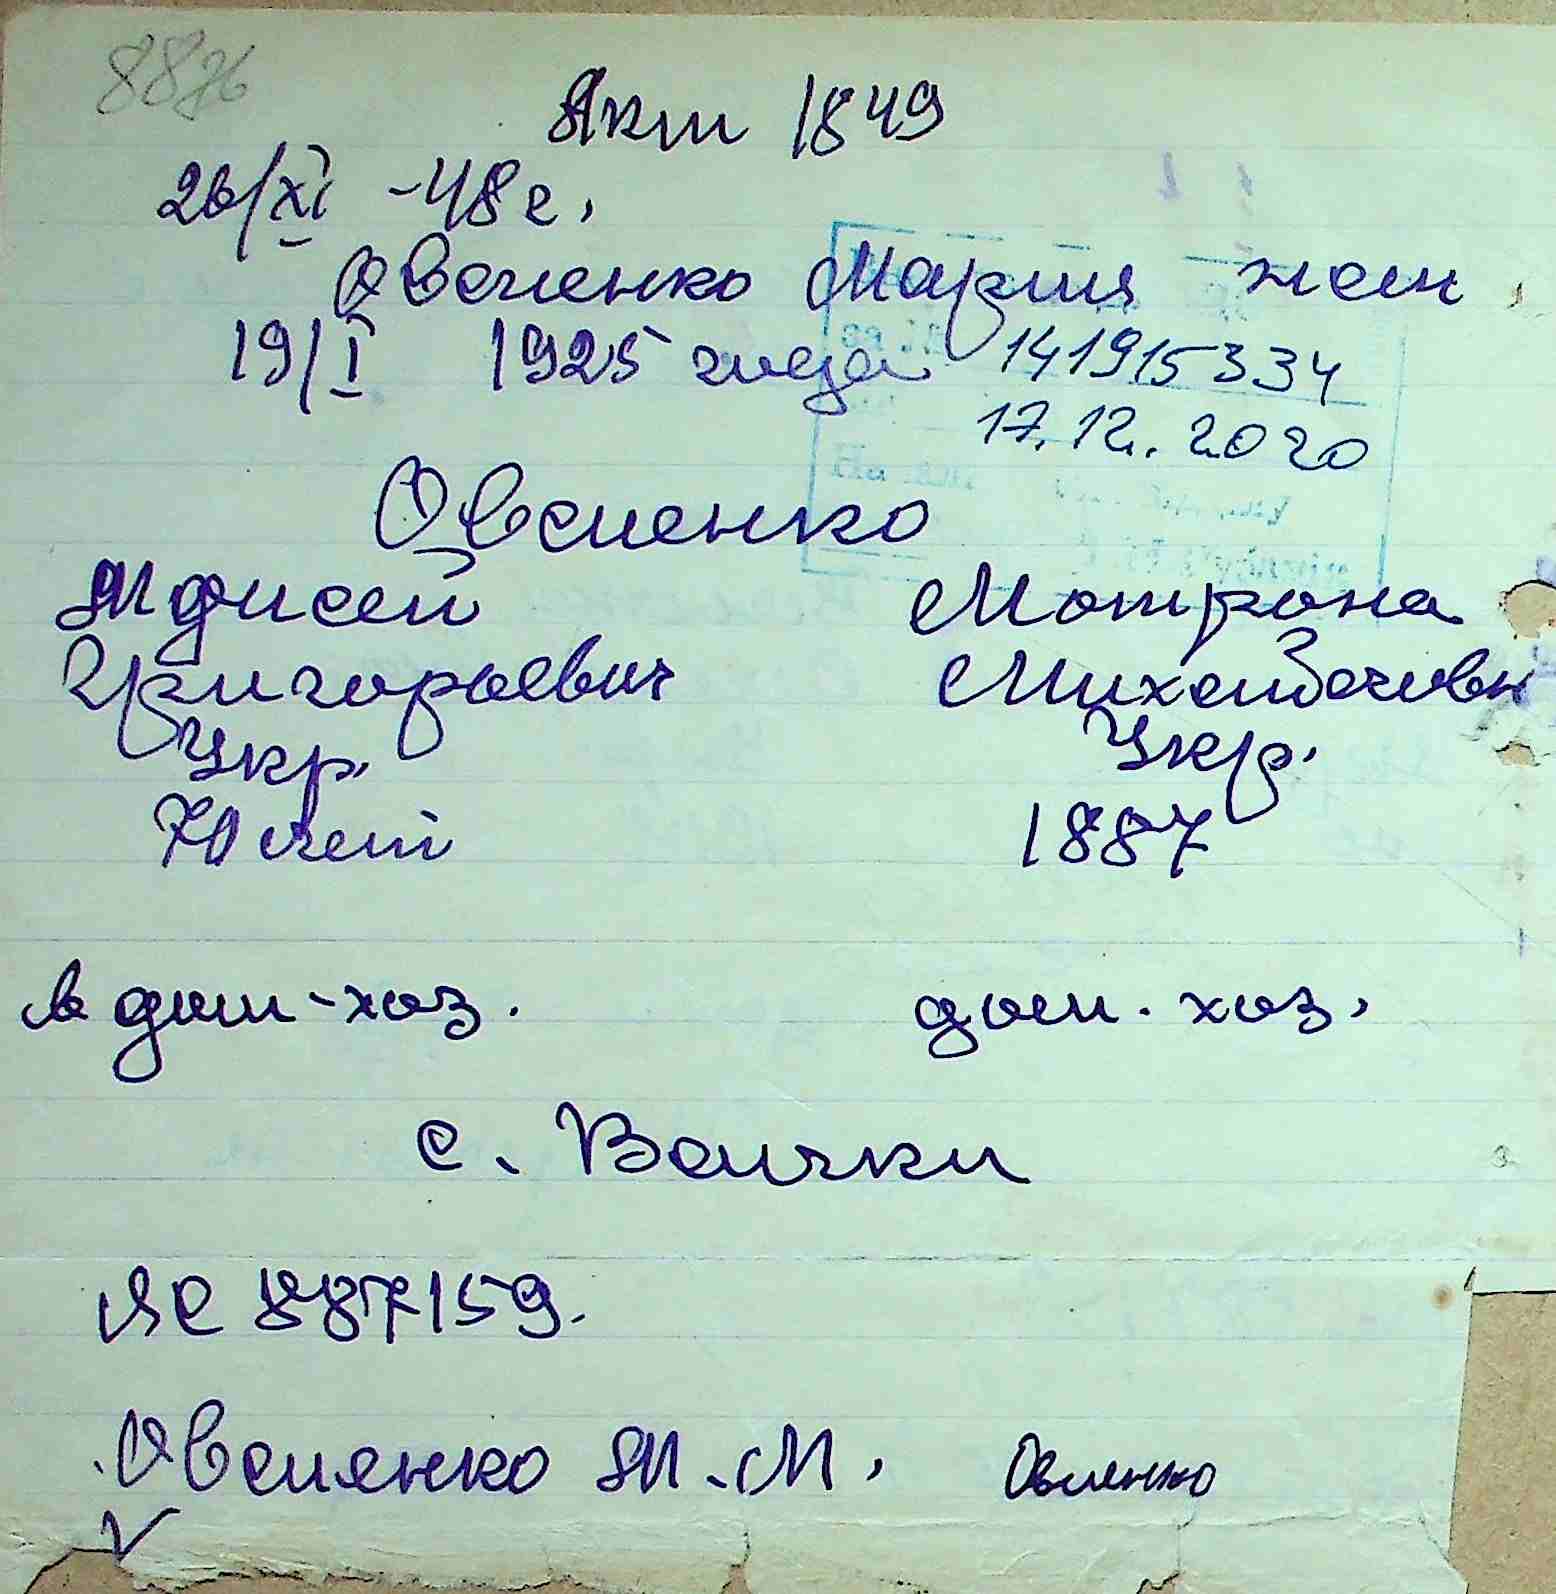 8876
Акт 1849
26/XI -48 г.
Овсиенко Мария жен.
19/I 1925 года 141915334
17.12.2020
Овсиенко
Мотрона
Григорьевич Михайловн
Укр. Укр.
70 лет 1887
в дом-хоз. дом. хоз.
с. Вончки
ЯС 887159.
Овсиенко М. М. Овсиенко